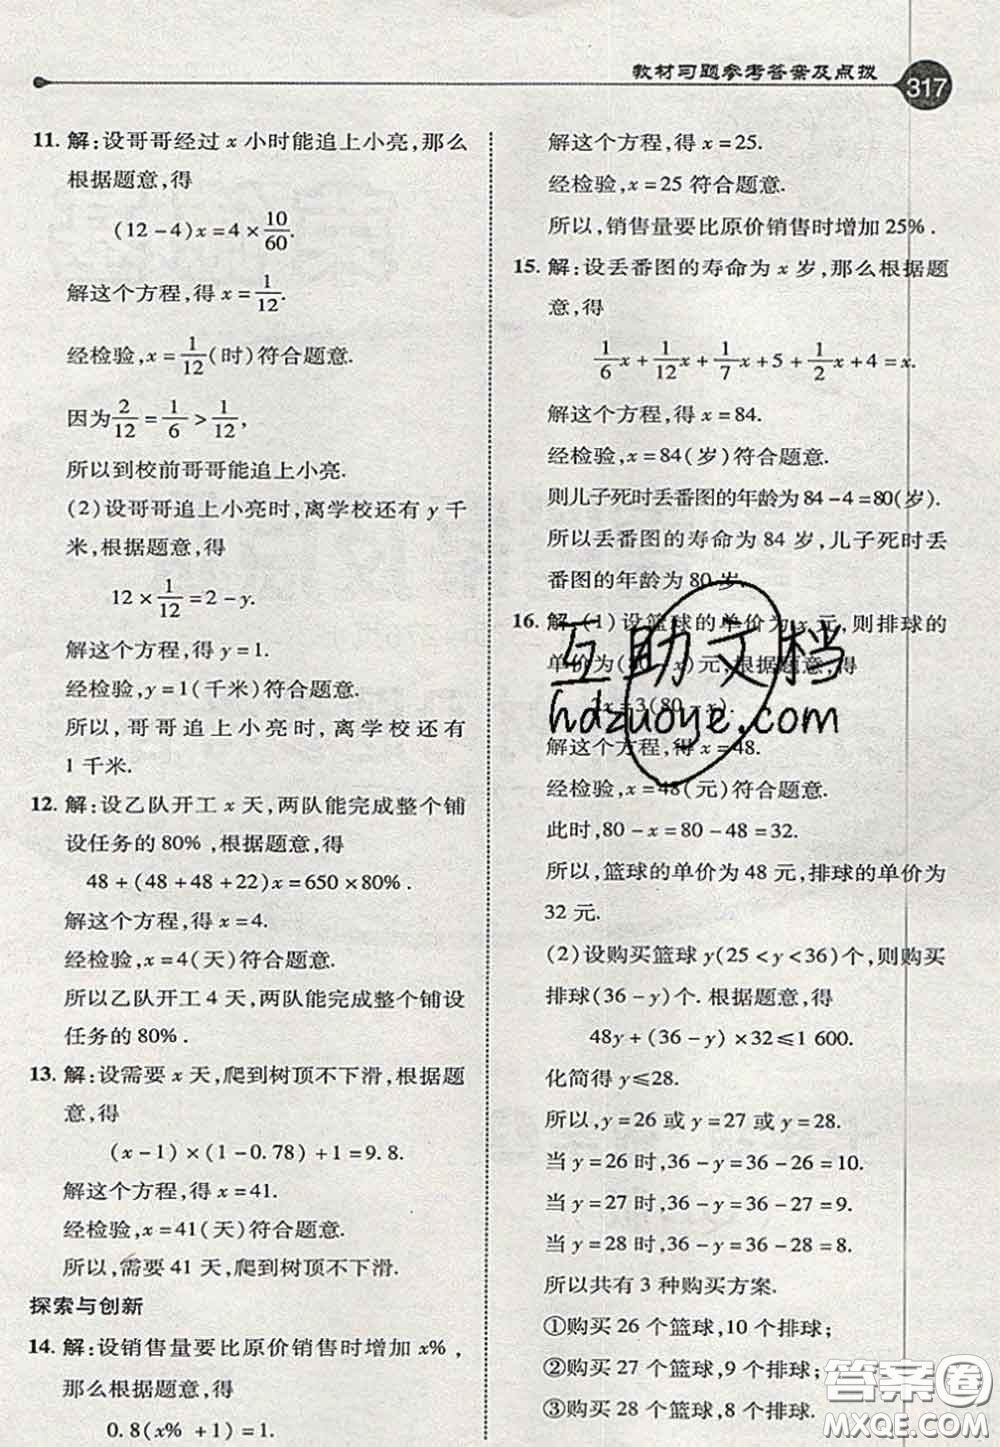 教材习题参考答案及点拨
317
11. 解:设哥哥经过 x 小时能追上小亮,那么
根据题意,得
(12-4)x=4×10/60.
解这个方程,得 x=1/12.
经检验,x=1/12(时)符合题意.
因为2/12=1/6>1/12,
所以到校前哥哥能追上小亮.
(2)设哥哥追上小亮时,离学校还有 y 千
米,根据题意,得
12×1/12=2-y.
解这个方程,得 y=1.
经检验,y=1(千米)符合题意.
所以,哥哥追上小亮时,离学校还有
1 千米.
12. 解:设乙队开工 x 天,两队能完成整个铺
设任务的 80% ,根据题意,得
48+(48+48+22)x=650×80% .
解这个方程,得 x=4.
经检验,x=4(天)符合题意.
所以乙队开工 4 天,两队能完成整个铺设
任务的 80% .
13. 解:设需要 x 天,爬到树顶不下滑,根据题
意,得
(x-1)×(1-0.78)+1=9.8.
解这个方程,得 x=41.
经检验,x=41(天)符合题意.
所以,需要 41 天,爬到树顶不下滑.
探索与创新
14. 解:设销售量要比原价销售时增加 x% ,
那么根据题意,得
0.8(x% +1)=1.
解这个方程,得 x=25.
经检验,x=25 符合题意.
所以,销售量要比原价销售时增加 25% .
15. 解:设丢番图的寿命为 x 岁,那么根据题
意,得
1/6x+1/12x+1/7x+5+1/2x+4=x.
解这个方程,得 x=84.
经检验,x=84(岁)符合题意.
则儿子死时丢番图的年龄为 84-4=80(岁).
所以丢番图的寿命为 84 岁,儿子死时丢
番图的年龄为 80 岁.
16. 解:(1)设篮球的单价为 x 元,则排球的
单价为(80-x)元,根据题意,得
2x=3(80-x).
解这个方程,得 x=48.
经检验,x=48(元)符合题意.
此时,80-x=80-48=32.
所以,篮球的单价为 48 元,排球的单价为
32 元.
(2)设购买篮球 y(25<y<36)个,则购买
排球(36-y)个. 根据题意,得
48y+(36-y)×32≤1 600.
化简得 y≤28.
所以,y=26 或 y=27 或 y=28.
当 y=26 时,36-y=36-26=10.
当 y=27 时,36-y=36-27=9.
当 y=28 时,36-y=36-28=8.
所以共有 3 种购买方案.
①购买 26 个篮球,10 个排球;
②购买 27 个篮球,9 个排球;
③购买 28 个篮球,8 个排球.
互助文档
hdzuoye.com
答案圈
MXQE.COM